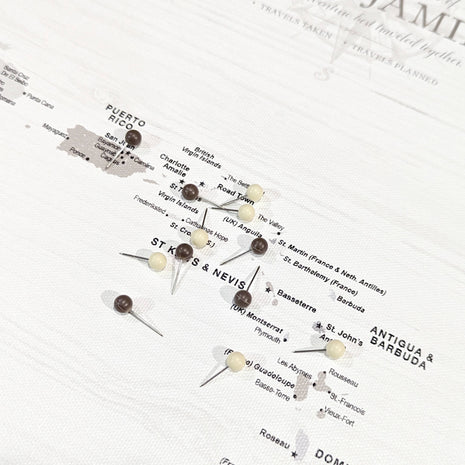 JAMI
adventure they traveled together.
TRAVELS TAKEN • TRAVELS PLANNED
Santa Cruz
De El Seibo
Punta Cana
PUERTO
RICO
San Juan
Mayaguez
Ponce
Caguas
Carolina
British
Virgin Islands
Charlotte
Amalie
The
Road Town
Virgin Islands
The Valley
Frederiksted
(UK) Anguilla
St. Martin (France & Neth. Antilles)
St. Barthelemy (France)
ST KITTS & NEVIS
Basseterre
Barbuda
(UK) Montserrat
Plymouth
St. John's
ANTIGUA &
BARBUDA
Les Abymes
Rousseau
Guadeloupe
Basse-Terre
St.-Francois
Vieux-Fort
Roseau
DOM